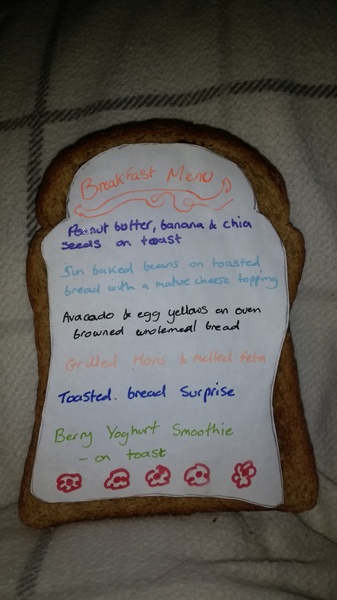 Breakfast Menu
Peanut butter, banana & chia
seeds on toast
Sun baked beans on toasted
bread with a mature cheese topping
Avacado & egg yellows on oven
browned wholemeal bread
Grilled & melled feta
Toasted bread Surprise
Berry Yoghurt Smoothie
- on toast